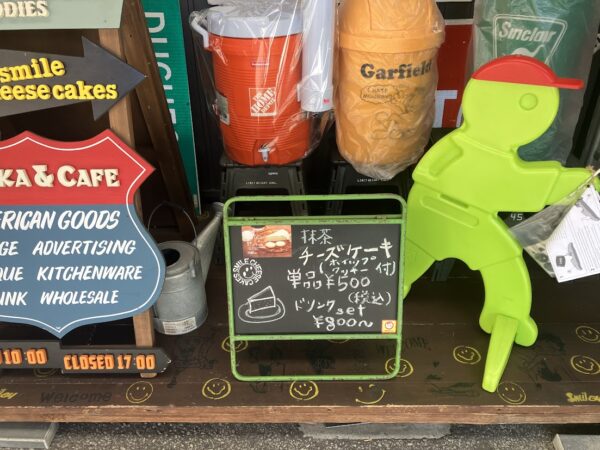 ODIES
smile
cheesecakes
KA & CAFE
AMERICAN GOODS
GE ADVERTISING
QUE KITCHENWARE
UNK WHOLESALE
10:00
CLOSED 17:00
THE HOME DEPOT
Garfield
Sinclair
45
抹茶
チーズケーキ
(ホイップ
クッキー付)
単品 ¥500
(税込)
ドリンク
set
¥800〜
SMILE
Welcome
Smile